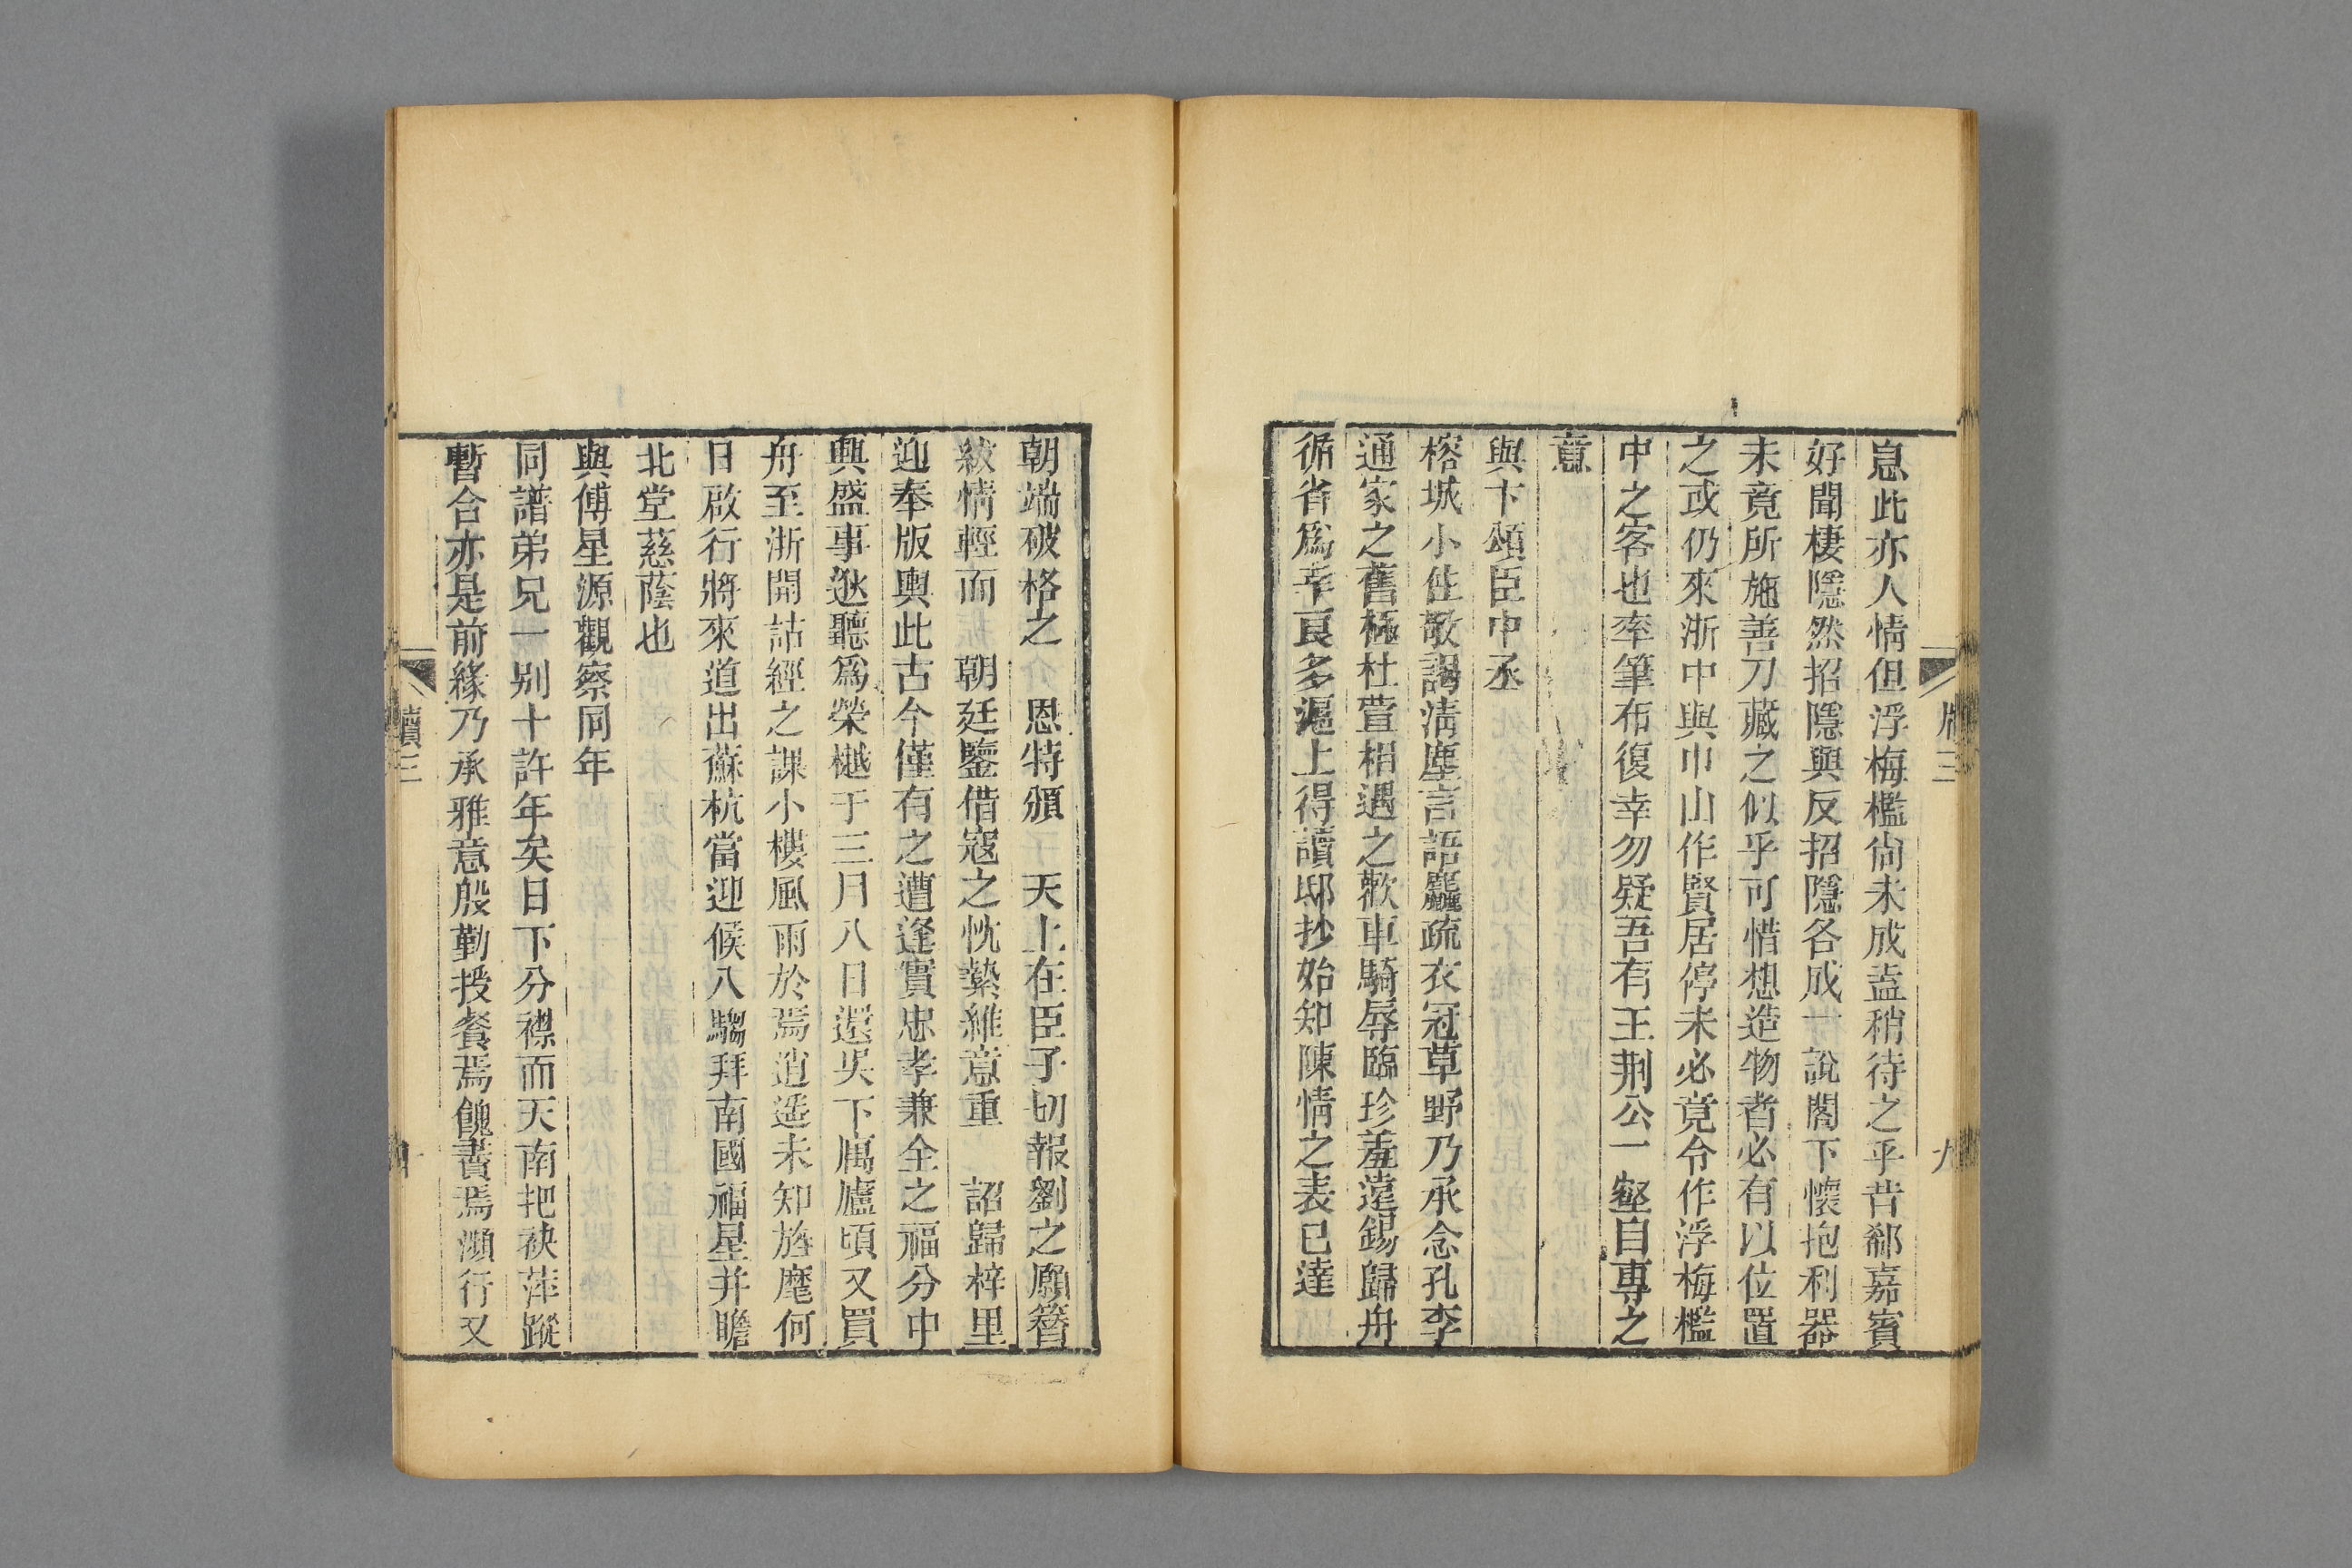 息此亦人情但浮梅檻尙未成盍稍待之乎昔郗嘉賓
好聞棲隱然招隱與反招隱各成一說閣下懷抱利器
未竟所施善刀藏之似乎可惜想造物者必有以位置
之或仍來浙中與巾山作賢居停未必竟令作浮梅檻
中之客也率筆布復幸勿疑吾有王荆公一壑自專之
意
與卞頌臣中丞
榕城小住敬謁淸塵言語麤疏衣冠草野乃承念孔李
通家之舊極杜萱相遇之歡車騎辱臨珍羞遠錫歸舟
循省爲幸良多滬上得讀邸抄始知陳情之表已達
朝端破格之 恩特頒 天上在臣子切報劉之願簪
紱情輕而 朝廷鑒借寇之忱縶維意重 詔歸梓里
迎奉版輿此古今僅有之遭逢實忠孝兼全之福分中
興盛事逖聽爲榮樾于三月八日還吳下寓廬頃又買
舟至浙開詁經之課小樓風雨於焉逍遥未知旌麾何
日啟行將來道出蘇杭當迎候八騶拜南國福星并瞻
北堂慈蔭也
與傅星源觀察同年
同譜弟兄一别十許年矣日下分襟而天南把袂萍蹤
暫合亦是前緣乃承雅意殷勤授餐焉餽贐焉瀕行又